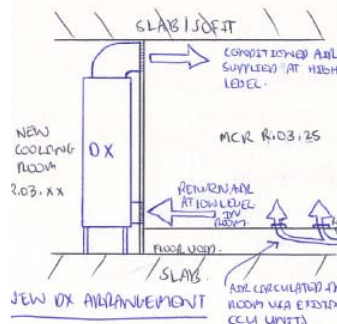 SLAB / SOFIT
CONDITIONED AIR
SUPPLIED AT HIGH
LEVEL.
NEW
COOLING
ROOM
R.03.XX
DX
MCR R.03.25
RETURN AIR
AT LOW LEVEL
IN
ROOM.
FLOOR VOID.
SLAB.
NEW DX ARRANGEMENT
AIR CIRCULATED
ROOM VIA EXISTING
CCU UNITS